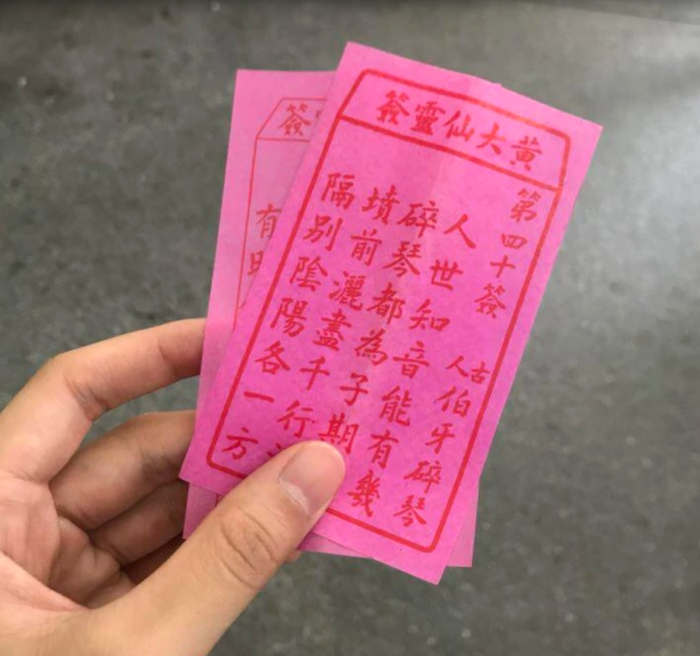 黃大仙靈簽
第四十簽
古人伯牙碎琴
人世知音能有幾
碎琴都為子期
墳前灑盡千行
隔別陰陽各一方
簽
有